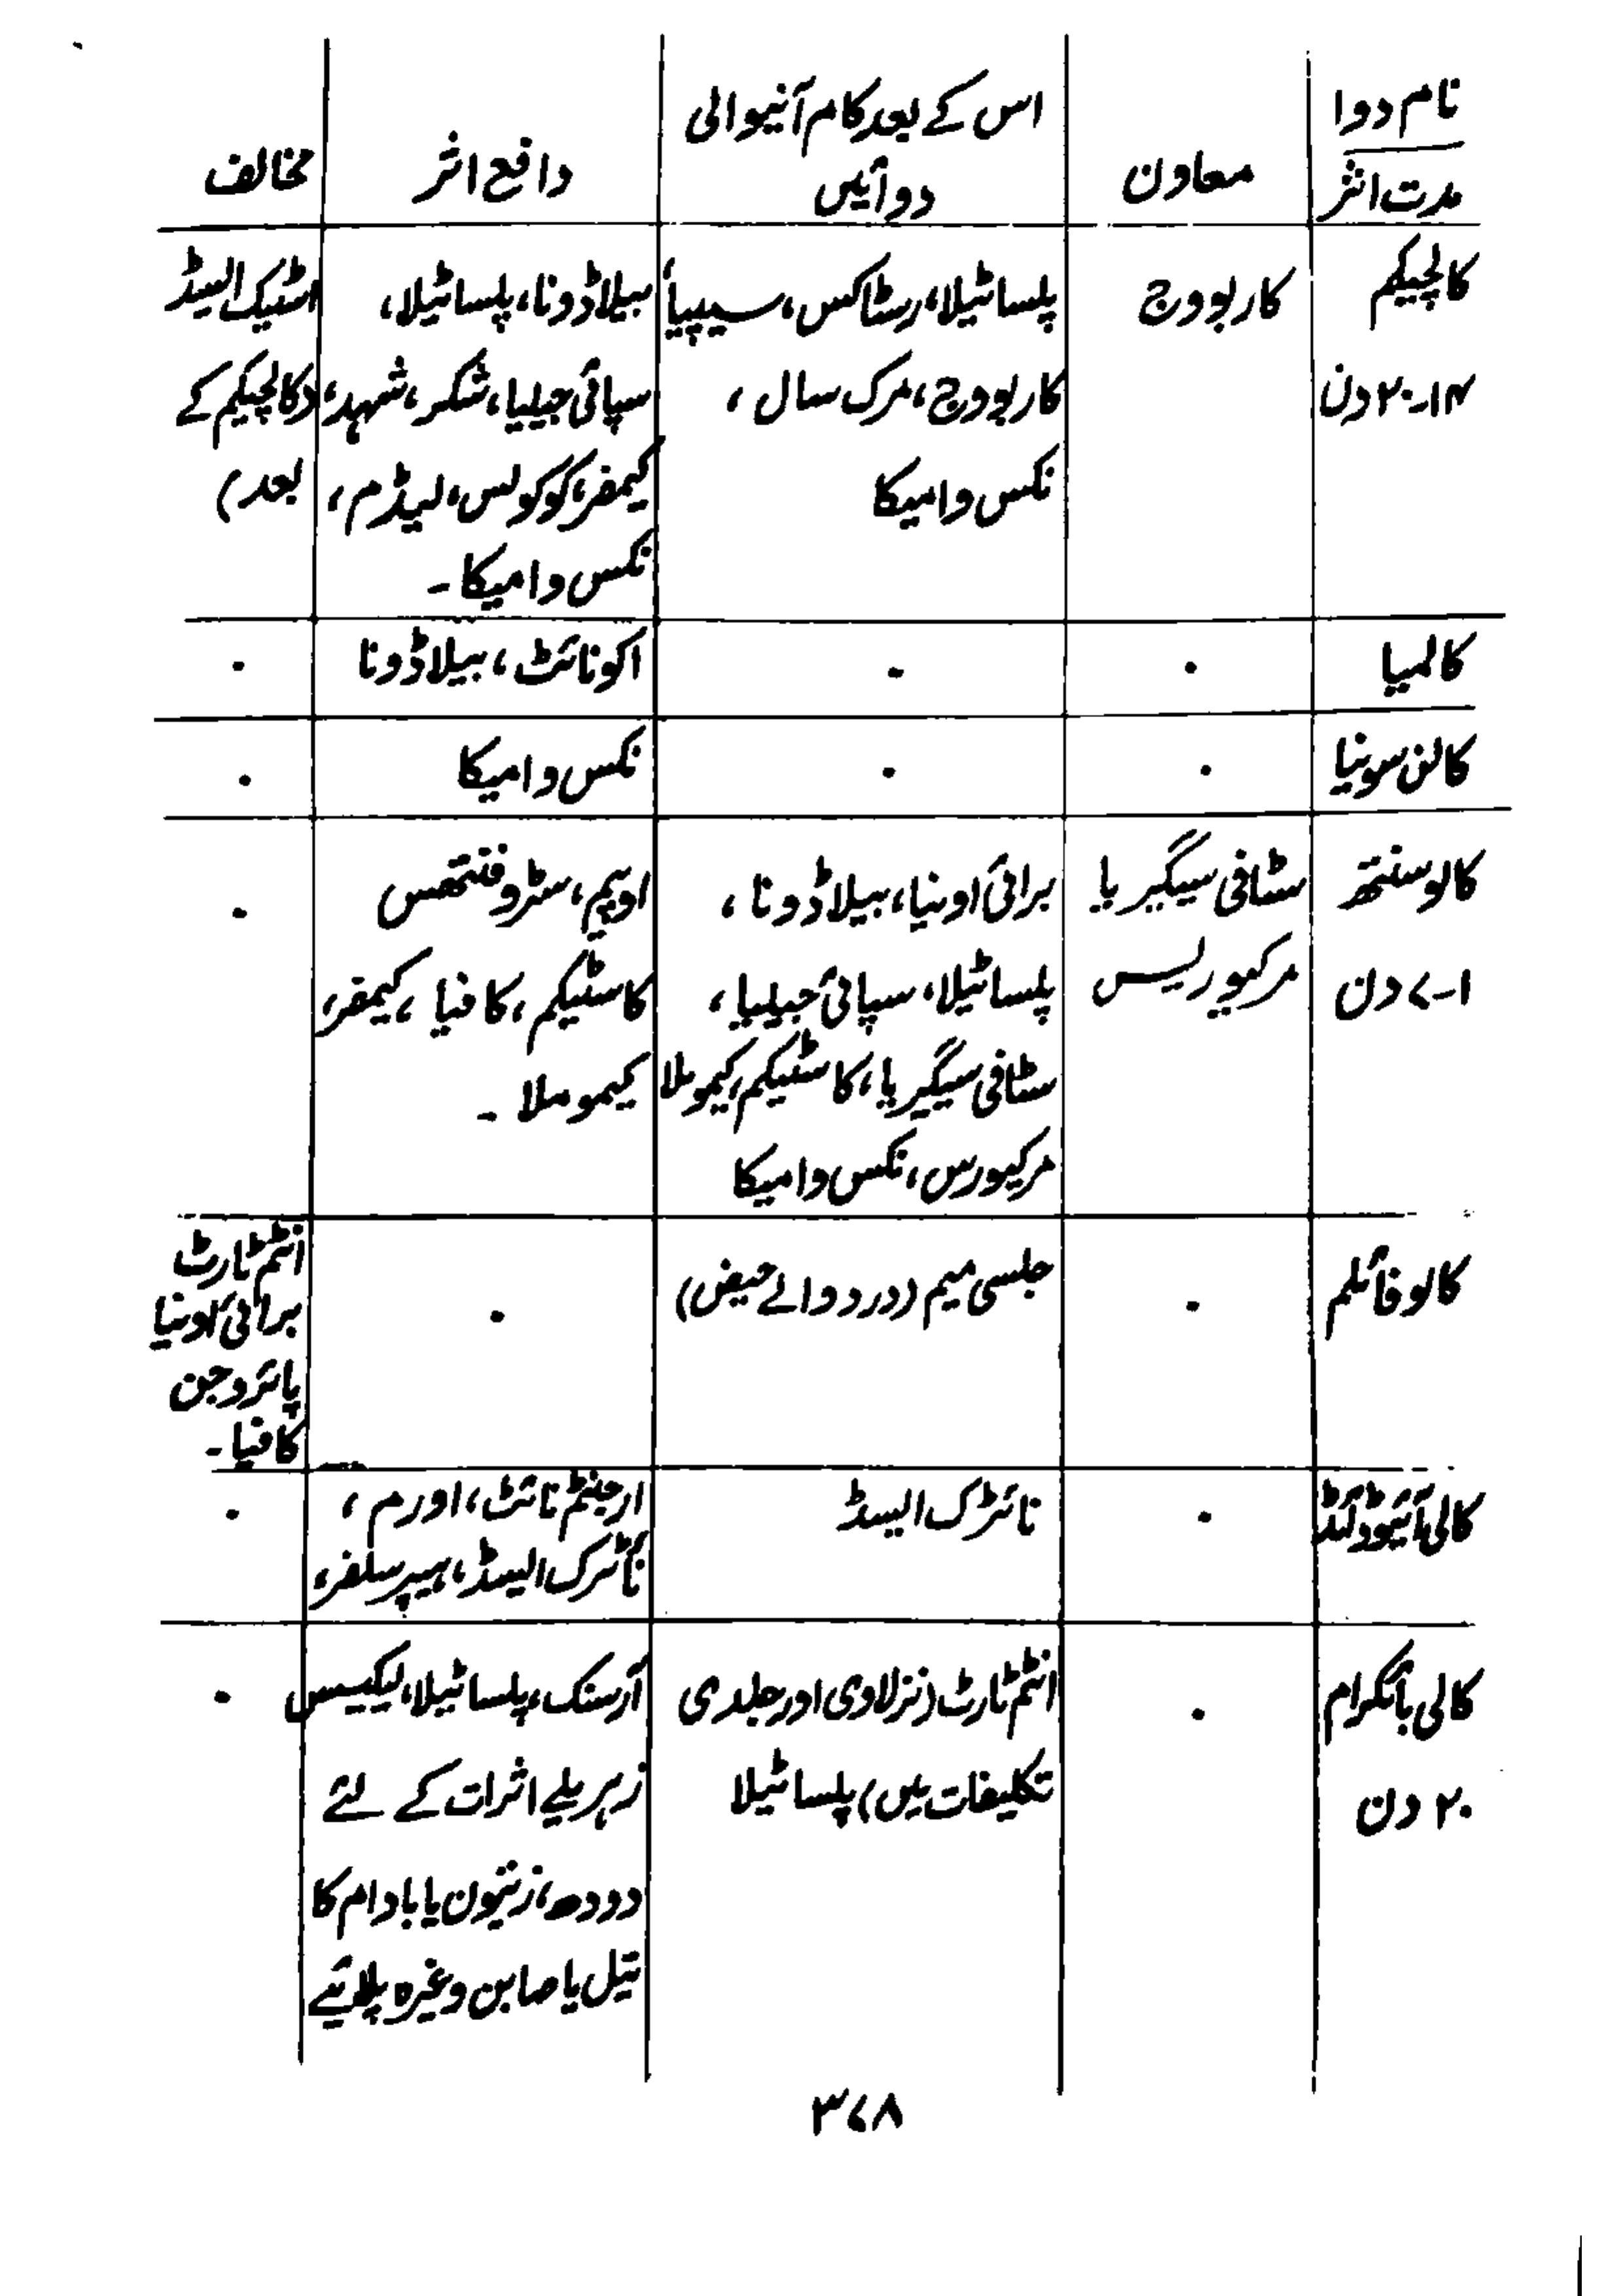 نام دوا
مدت اثر
معاون
اس کے بعد کام آنیوالی
دوائیں
دافع اثر
مخالف
کالچیکم
۱۴-۲۰ دن
کاربووج
پلساٹیلا، رسٹاکس، سیپیا،
کاربووج، مرک سال،
نکس وامیکا
بیلاڈونا، پلساٹیلا،
سپائی جیلیا، شکر، شہد،
کیمفر، کوکولس، لیڈم،
نکس وامیکا۔
اسٹیک ایسڈ
(کالچیکم کے
بعد)
کالمیا
.
.
اکونائٹ، بیلاڈونا
.
کالن سونیا
.
.
نکس وامیکا
.
کالوسنتھ
۱-۷ دن
سٹافی سیگیریا
مرکیوریس
برائی اونیا، بیلاڈونا،
پلساٹیلا، سپائی جیلیا،
سٹافی سیگیریا، کاسٹیکم، کیموملا
مرکیورس، نکس وامیکا
اوپیم، سٹروفنتھس
کاسٹیکم، کافیا، کیمفر،
کیموملا۔
.
کالوفائلم
.
جلسی میم (درد والے حیض)
.
انٹم ٹارٹ
برائی اونیا
پائروجن
کافیا۔
کالی آئیوڈائڈ
.
نائٹرک ایسڈ
ارجنٹم نائٹ، اورم،
نائٹرک ایسڈ، ہیپر سلفر،
.
کالی بائکرام
۲۰ دن
.
انٹم ٹارٹ (نزلاوی اور جلدی
تکلیفات میں) پلساٹیلا
آرسنک، پلساٹیلا، لیکیسس
زہریلے اثرات کے لئے
دودھ، زیتون یا بادام کا
تیل یا صابن وغیرہ پلائیے
.
۳۷۸